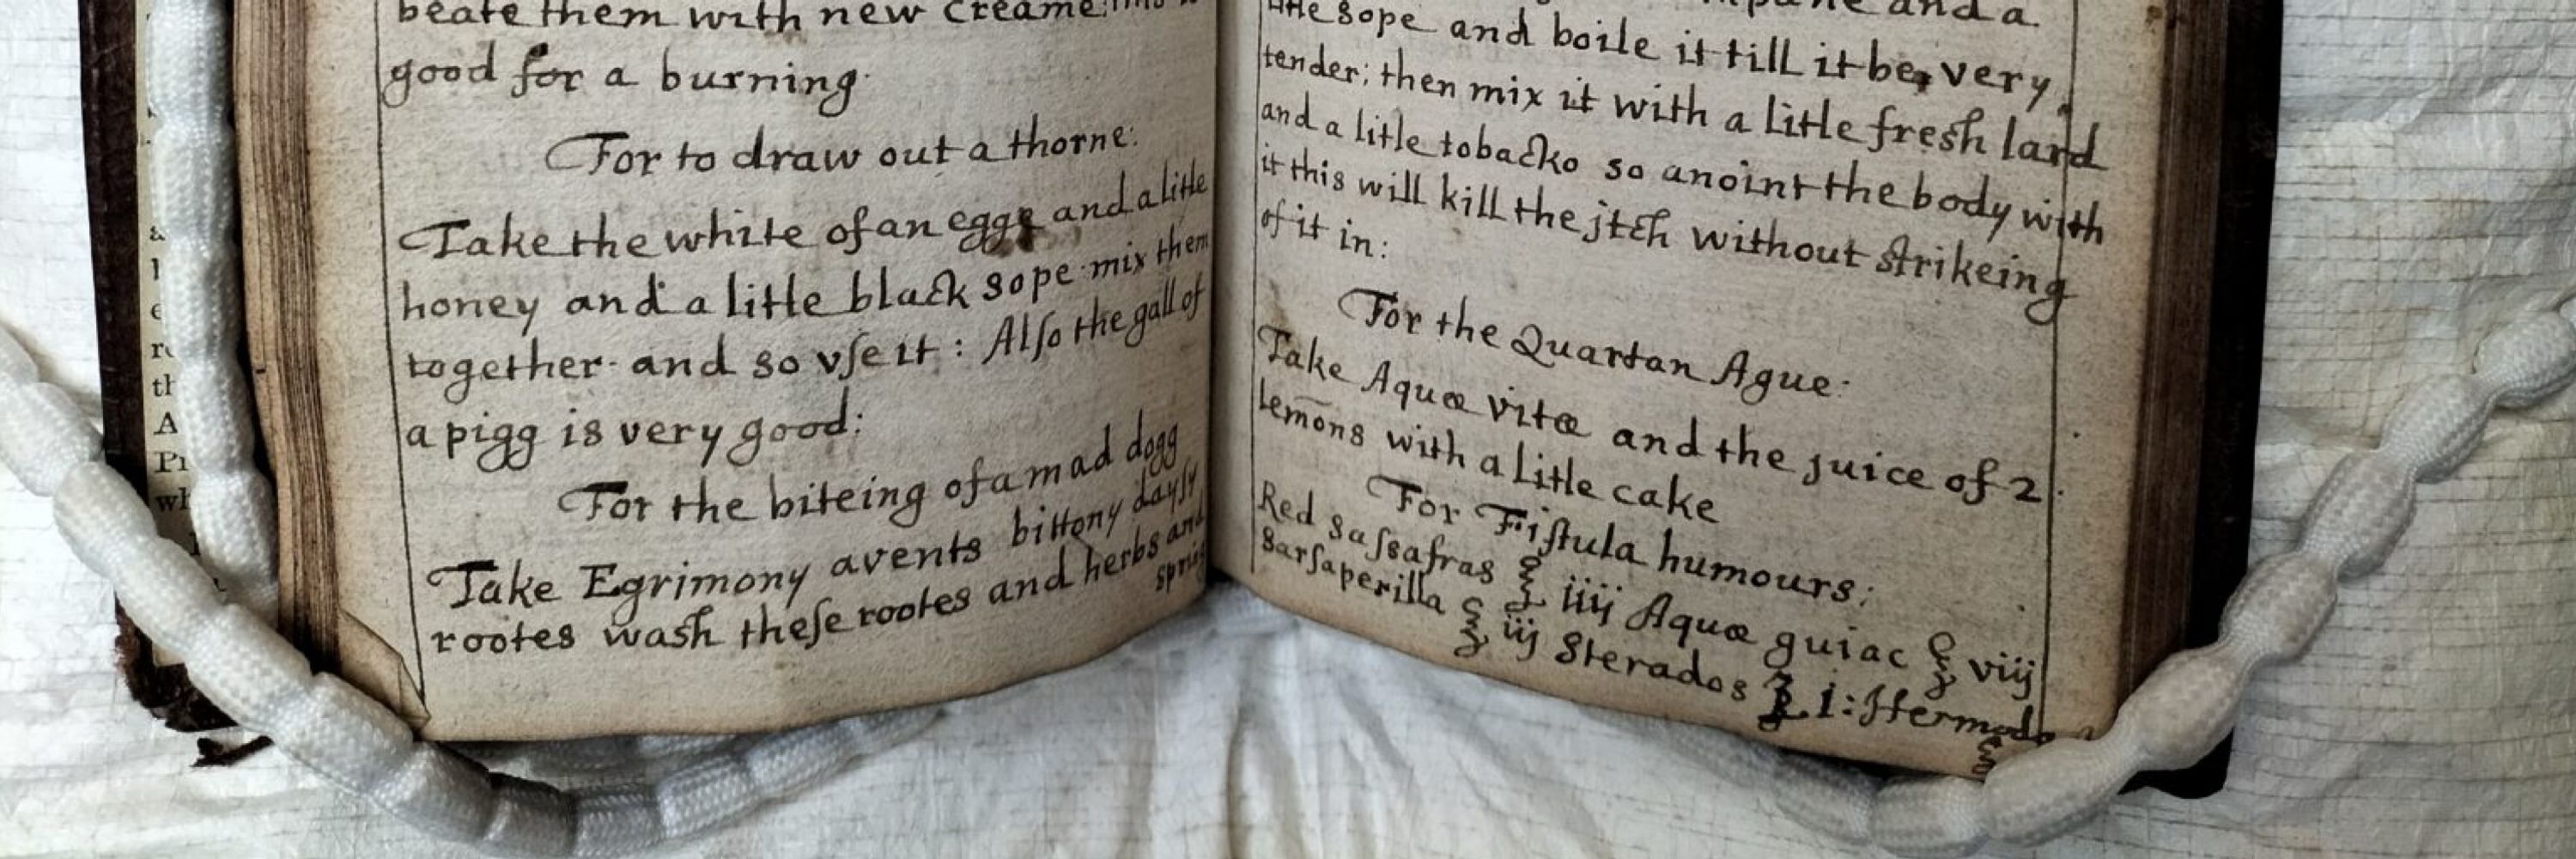 beate them with new creame
good for a burning
For to draw out a thorne:
Take the white of an egge and a litle
honey and a litle black sope mix them
together and so vſe it : Alſo the gall of
a pigg is very good:
For the biteing of a mad dogg
Take Egrimony avents bittony dayſy
rootes wash theſe rootes and herbs and
spring
and a
litle sope and boile it till it be very
tender; then mix it with a litle fresh lard
and a litle tobacko so anoint the body with
it this will kill the jtch without strikeing
of it in:
For the Quartan Ague:
Take Aquæ vitæ and the juice of 2
lemons with a litle cake
For Fiſtula humours:
Red saſsafras ℥ iiij Aquæ guiac ℥ viij
Sarſaperilla ℥ iij Sterados ℥ 1: Hermod
a
l
e
th
A
Pr
wh